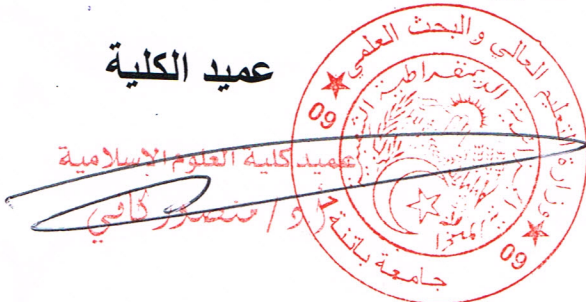 عميد الكلية
عميد كلية العلوم الإسلامية
أ د / منصور كافي
وزارة التعليم العالي والبحث العلمي
الجمهورية الجزائرية الديمقراطية الشعبية
جامعة باتنة 1
09
09